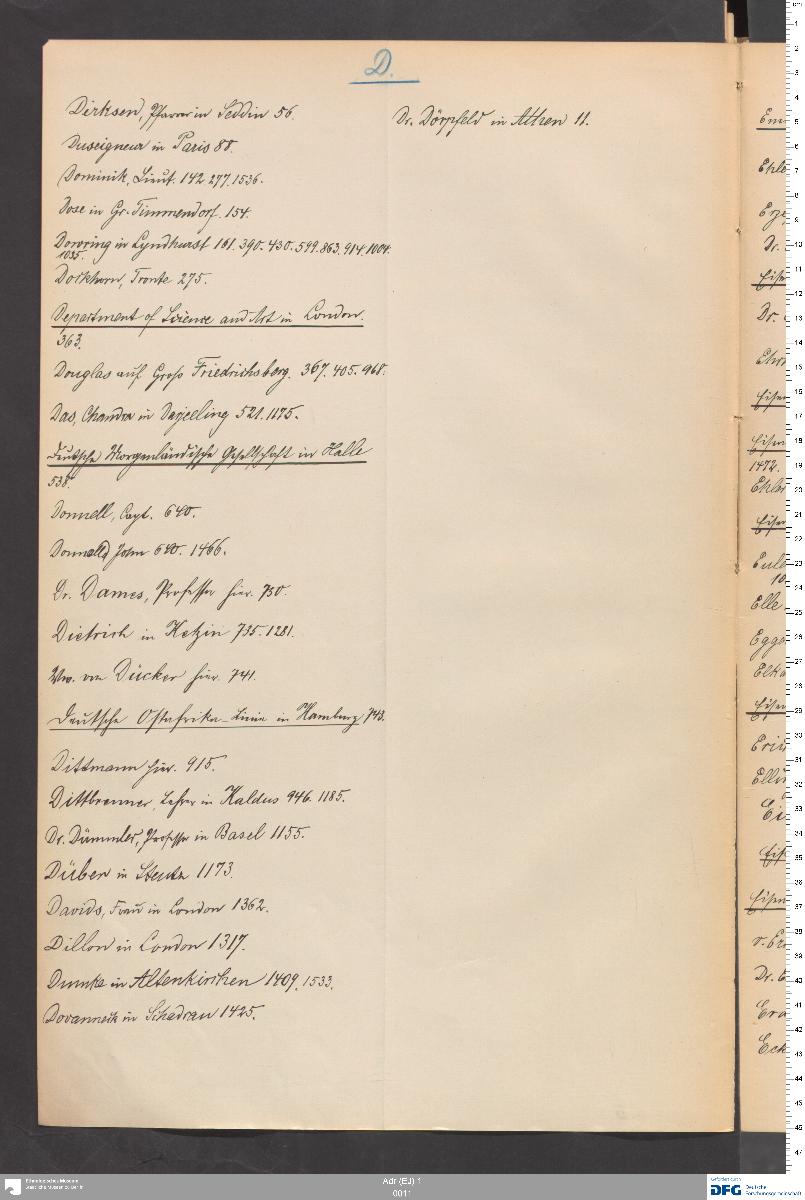 D.
Dirksen, Pfarrer in Seddin 56.
Duseigneur in Paris 88.
Dominik, Lieut. 142. 277. 1536.
Dose in Gr. Timmendorf. 154.
Dowring in Lyndhurst 161. 390. 430. 599. 863. 914. 1004.
1035.
Dockhorn, Tronte 275.
Department of Science and Art in London.
363.
Douglas auf Groß Friedrichsberg. 367. 405. 968.
Das, Chandra in Darjeeling 521. 1175.
Deutsche Morgenländische Gesellschaft in Halle
538.
Donnell, Capt. 640.
Donnell John 640. 1466.
Dr. Dames, Professor hier. 730.
Dietrich in Ketzin 735. 1281.
von Dücker hier. 741.
Deutsche Ostafrika-Linie in Hamburg 743.
Dittmann hier. 915.
Dittbrenner, Lehrer in Kaldus 946. 1185.
Dr. Dümmler, Professor in Basel 1155.
Düben in 1173.
Davids, Frau in London 1362.
Dillon in London 1317.
Dumke in Altenkirchen 1409. 1533.
in Schadrau 1425.
Dr. Dörpfeld in Athen 11.
Dr.
Dr.
1472.
10
Elle
Dr.
Ethnologisches Museum
Staatliche Museen zu Berlin
Adr (EJ) 1
0011
Gefördert durch
DFG Deutsche
Forschungsgemeinschaft